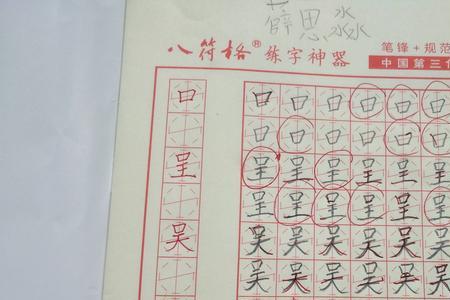 思淼
八符格® 练字神器 笔锋+规范
中国第三
口 口 口 口 口 口 口
口 口 口 口 口 口
呈 呈 呈 呈 呈 呈 呈
呈 呈 呈 呈 呈 呈
吴 吴 吴 吴 吴 吴 吴
吴 吴 吴 吴 吴 吴